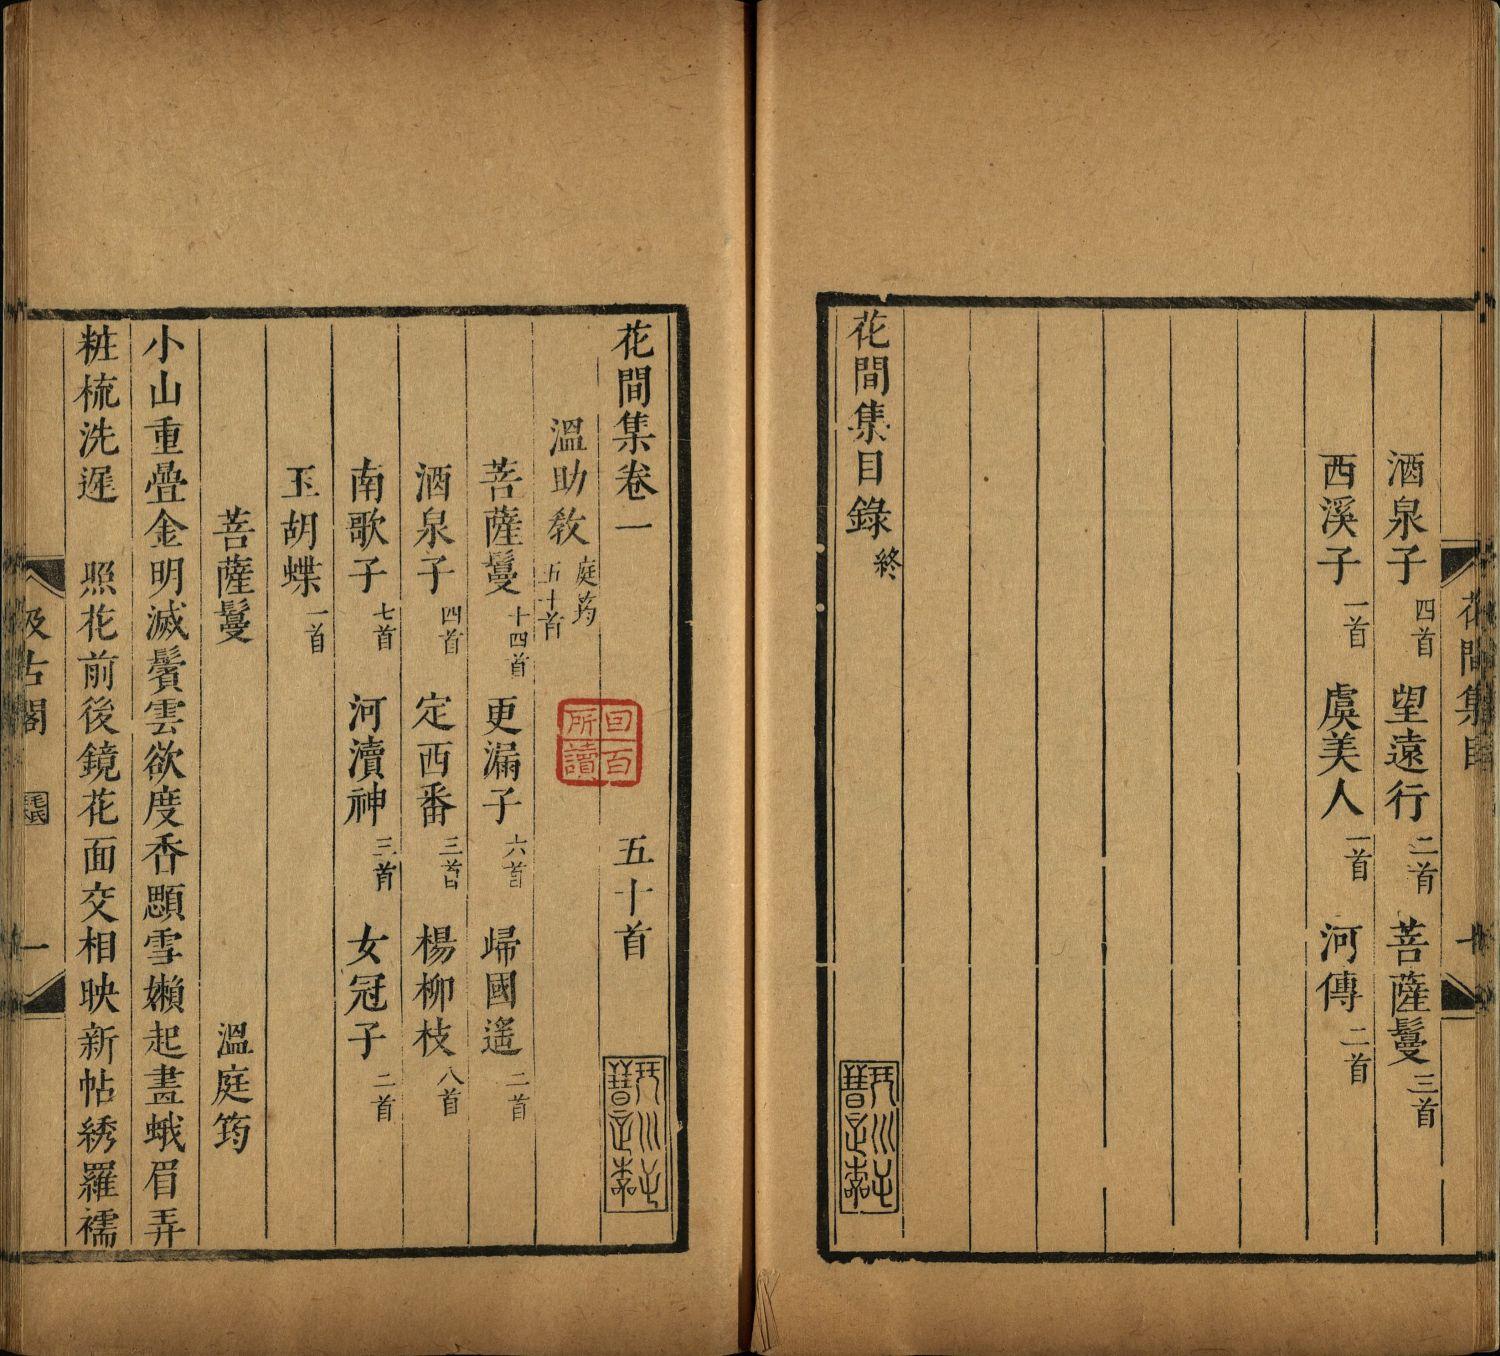 酒泉子 四首 望遠行 二首 菩薩鬘 三首
西溪子 一首 虞美人 一首 河傳 二首
花間集目錄 終
花間集目
花間集卷一 五十首
溫助教 庭筠 五十首
菩薩鬘 十四首 更漏子 六首 歸國遙 二首
酒泉子 四首 定西番 三首 楊柳枝 八首
南歌子 七首 河瀆神 三首 女冠子 二首
玉胡蝶 一首
菩薩鬘 溫庭筠
小山重疊金明滅鬢雲欲度香顋雪嬾起畫蛾眉弄
粧梳洗遲 照花前後鏡花面交相映新帖綉羅襦
汲古閣 毛氏 一